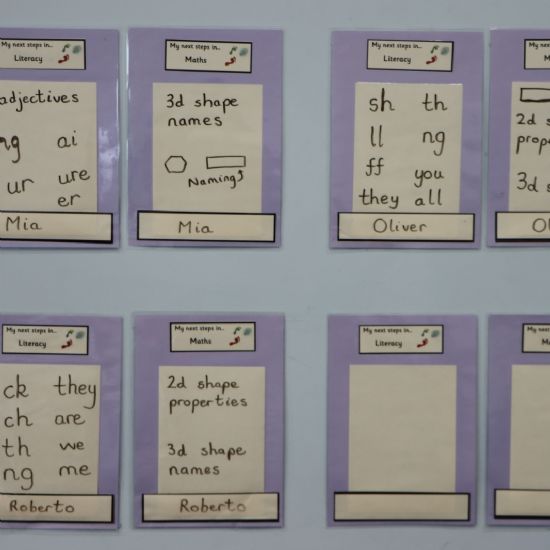 My next steps in..
Literacy
adjectives
ng ai
ur ure
er
Mia
My next steps in..
Maths
3d shape
names
Naming
Mia
My next steps in..
Literacy
sh th
ll ng
ff you
they all
Oliver
My
2d
3d
My next steps in..
Literacy
ck they
ch are
th we
ng me
Roberto
My next steps in..
Maths
2d shape
properties
3d shape
names
Roberto
My next steps in..
Literacy
My